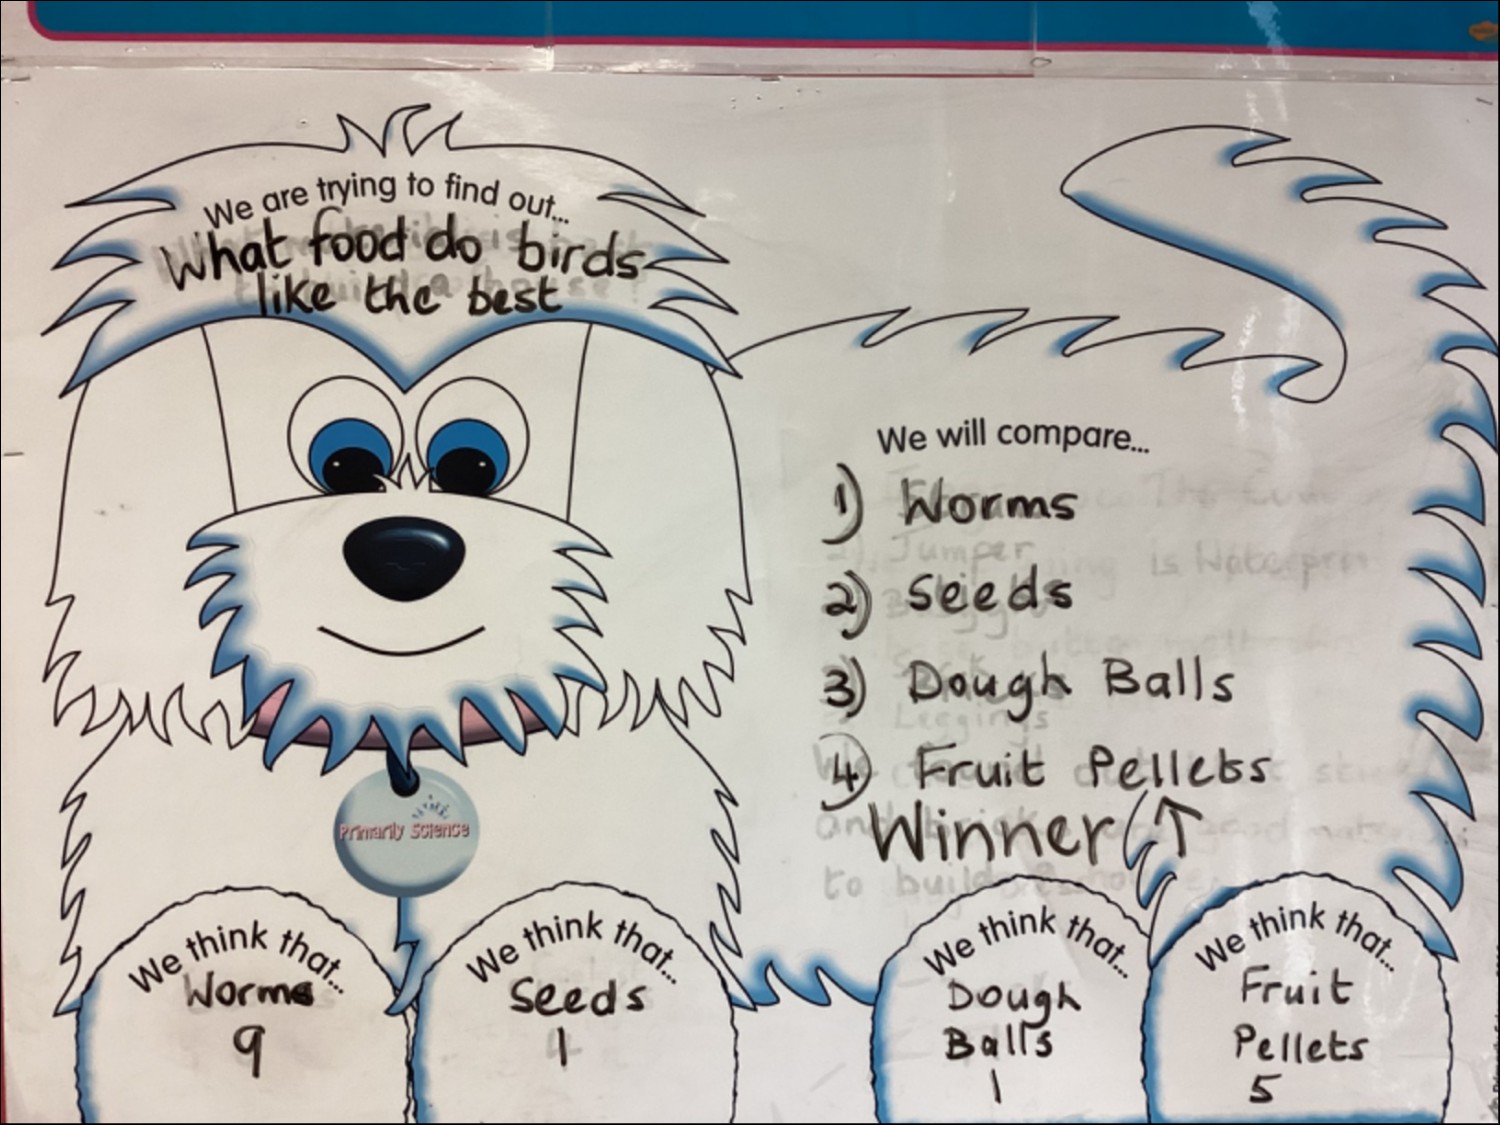 We are trying to find out...
What food do birds
like the best
We will compare...
1) Worms
2) Seeds
3) Dough Balls
4) Fruit Pellets
Winner ↑
Primarily Science
We think that...
Worms
9
We think that...
Seeds
1
We think that...
Dough
Balls
1
We think that...
Fruit
Pellets
5